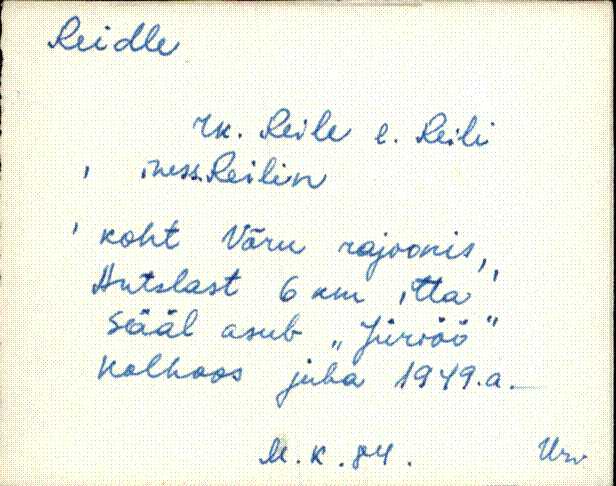 Reidle
rk. Reile e. Reili
iness. Reilin
koht Võru rajoonis,
Antslast 6 km itta
Sääl asub „Jüriöö"
Kolhoos juba 1949.a.
M.K.84. Urv